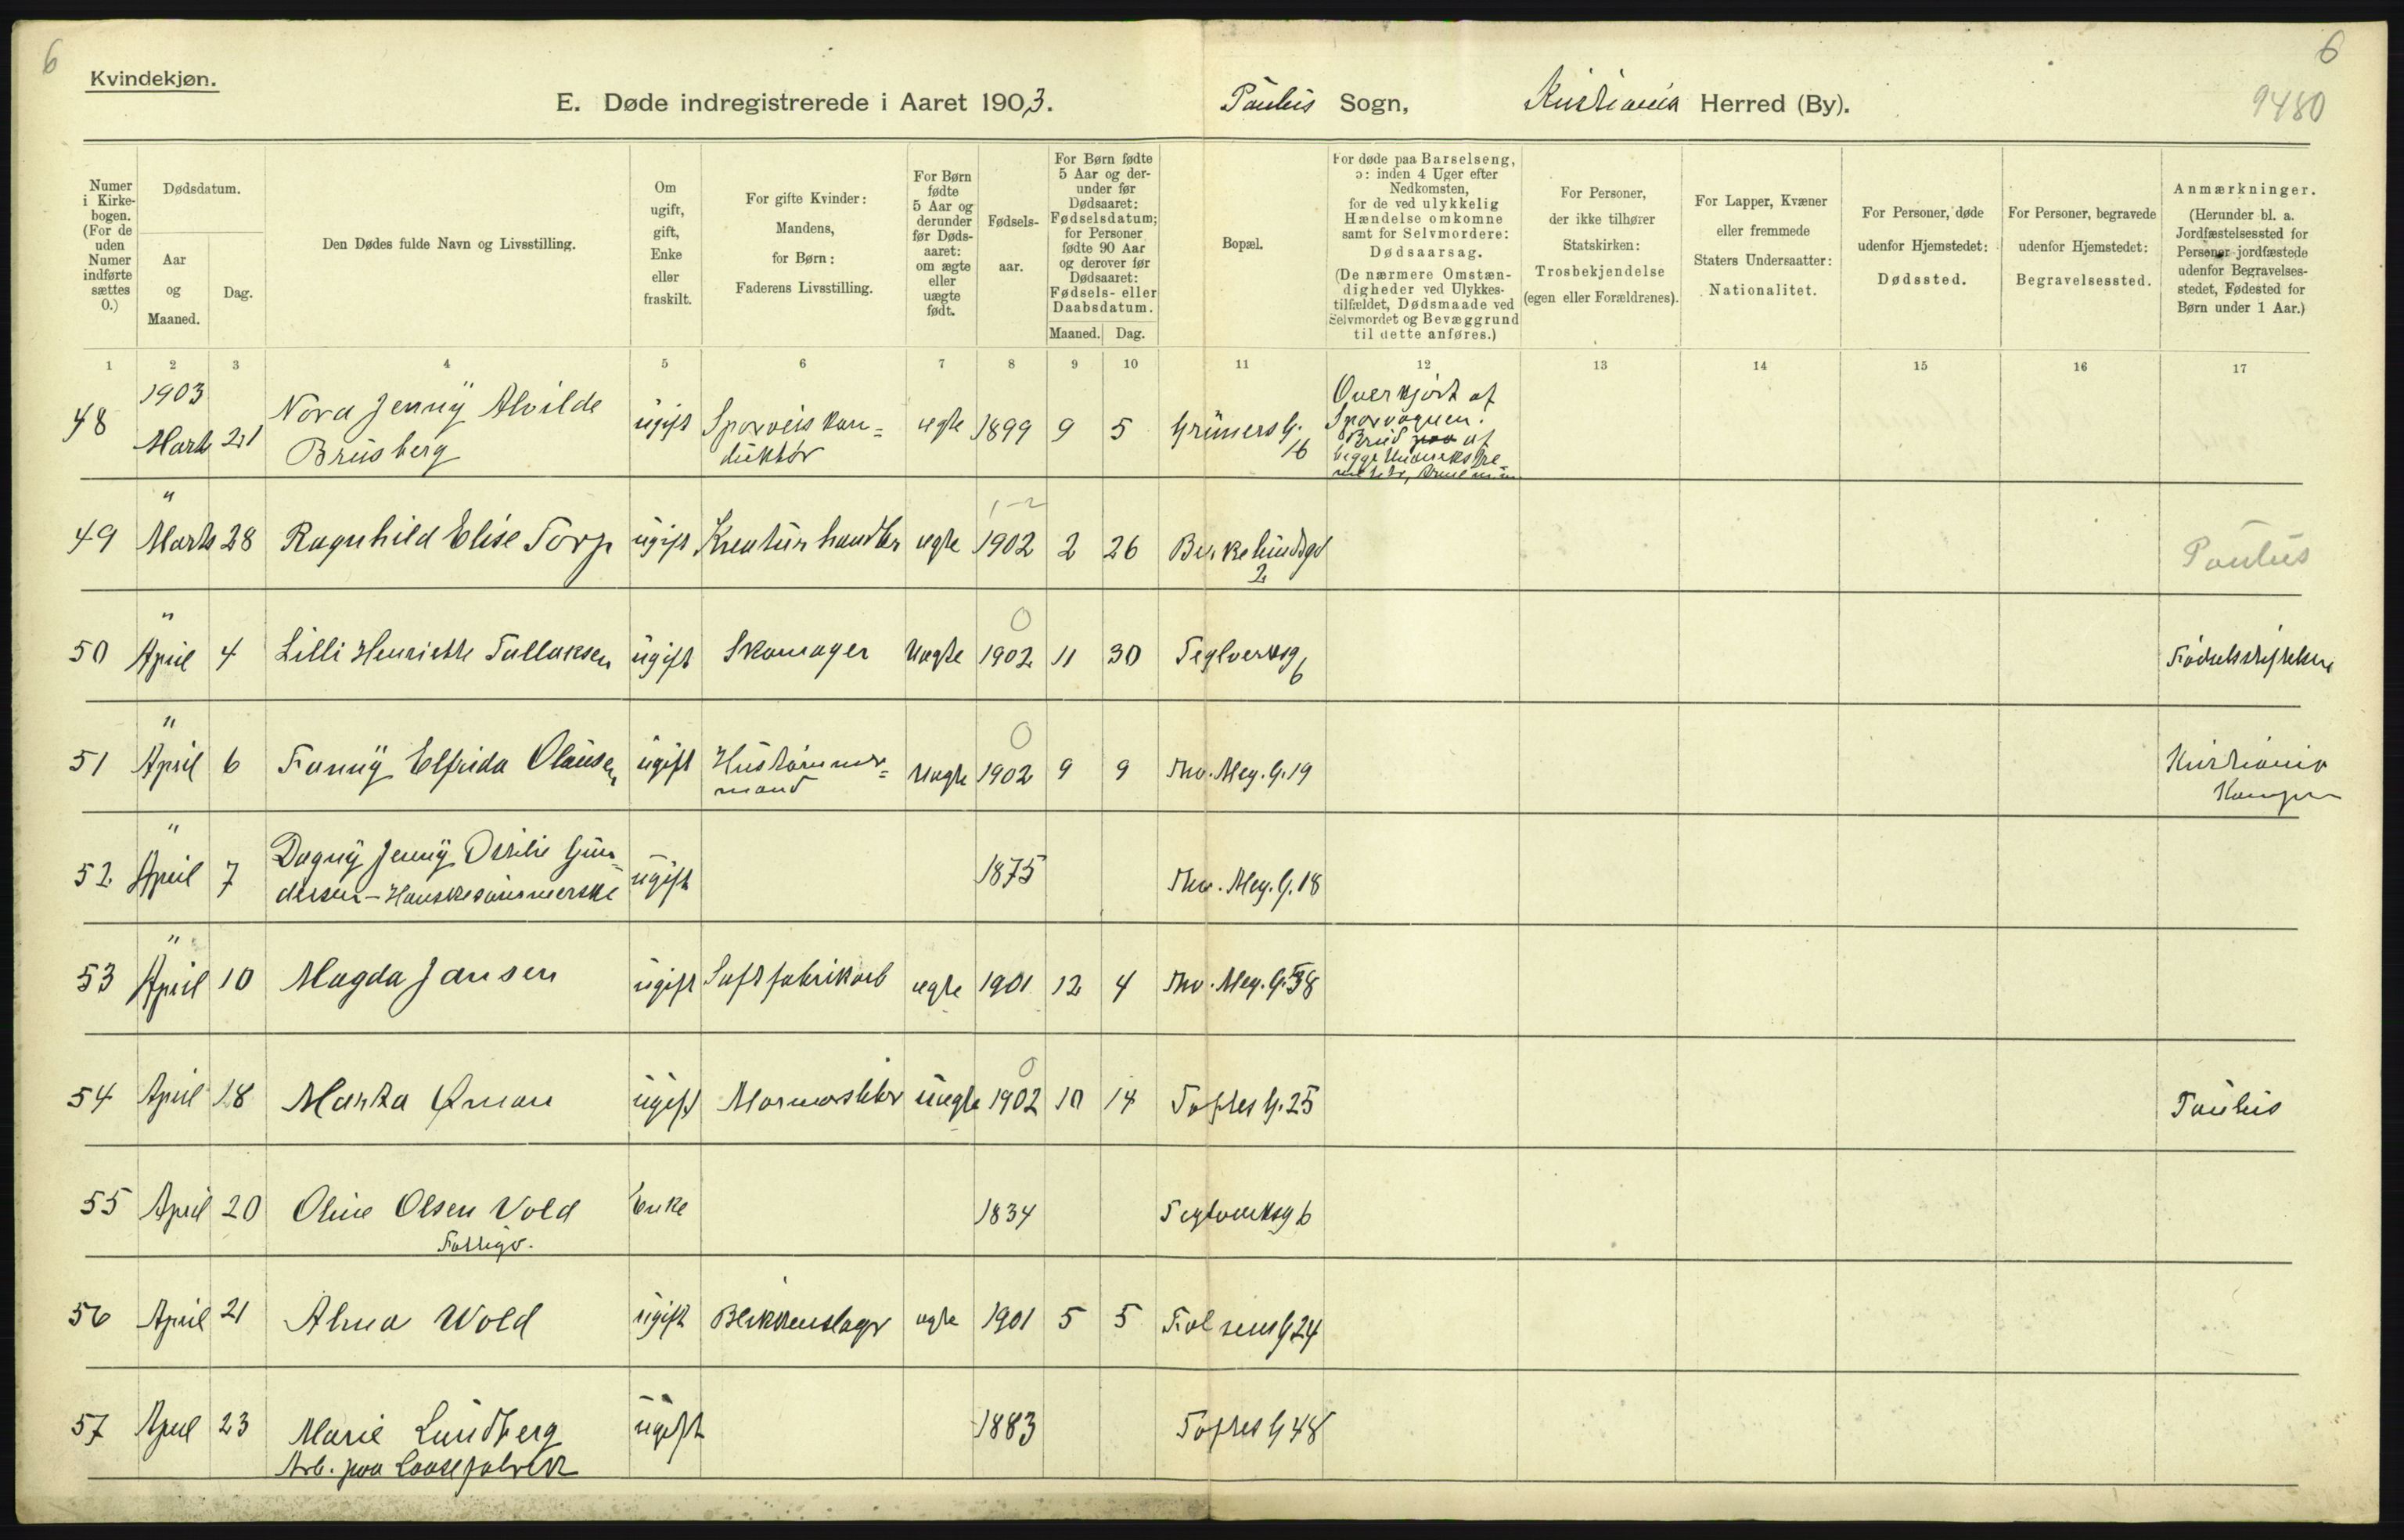 6
6
Kvindekjøn.
E. Døde indregistrerede i Aaret 1903. Paulus Sogn, Kristiania Herred (By).
9480
Numer
i Kirke-
bogen.
(For de
uden
Numer
indførte
sættes
0.)
Dødsdatum.
Aar
og
Maaned.
Dag.
Den Dødes fulde Navn og Livsstilling.
Om
ugift,
gift,
Enke
eller
fraskilt.
For gifte Kvinder:
Mandens,
for Børn:
Faderens Livsstilling.
For Børn
fødte
5 Aar og
derunder
før Døds-
aaret:
om ægte
eller
uægte
født.
Fødsels-
aar.
For Børn fødte
5 Aar og der-
under før
Dødsaaret:
Fødselsdatum;
for Personer
fødte 90 Aar
og derover før
Dødsaaret:
Fødsels- eller
Daabsdatum.
Maaned. Dag.
Bopæl.
For døde paa Barselseng,
ɔ: inden 4 Uger efter
Nedkomsten,
for de ved ulykkelig
Hændelse omkomne
samt for Selvmordere:
Dødsaarsag.
(De nærmere Omstæn-
digheder ved Ulykkes-
tilfældet, Dødsmaade ved
Selvmordet og Bevæggrund
til dette anføres.)
For Personer,
der ikke tilhører
Statskirken:
Trosbekjendelse
(egen eller Forældrenes).
For Lapper, Kvæner
eller fremmede
Staters Undersaatter:
Nationalitet.
For Personer, døde
udenfor Hjemstedet:
Dødssted.
For Personer, begravede
udenfor Hjemstedet:
Begravelsessted.
Anmærkninger.
(Herunder bl. a.
Jordfæstelsessted for
Personer jordfæstede
udenfor Begravelses-
stedet, Fødested for
Børn under 1 Aar.)
1 2 3 4 5 6 7 8 9 10 11 12 13 14 15 16 17
1903
48 Marts 21 Nora Jenny Alvilde ugift Sporveiskon= ægte 1899 9 5 Grüners G. Overkjørt af
Brusberg duktør 16 Sporvognen.
Brud paa af
begge
"
1-2
49 Marts 28 Ragnhild Elise Torp ugift Kreaturhandler ægte 1902 2 26 Birkelundsgd Paulus
2
" 0
50 April 4 Lilli Henriette Tallaksen ugift Skomager Uægte 1902 11 30 Teglverksg Fødselsstiftelsen
6
" 0
51 April 6 Fanny Elfrida Olausen ugift Hustømmer= Uægte 1902 9 9 Thv. Mey. G. 19 Kristiania
mand Kampen
"
52 April 7 Dagny Jenny Ovilie Gun- ugift 1875 Thv. Mey. G. 18
dersen - Hanskesømmerske
"
53 April 10 Magda Jansen ugift Saftfabrikarb ægte 1901 12 4 Thv. Mey. G. 38
0
54 April 18 Marta Öman ugift Marmorsliber uægte 1902 10 14 Toftes G. 25 Paulus
55 April 20 Oline Olsen Vold Enke 1834 Teglverksg 6
Fattigv.
56 April 21 Alma Wold ugift Blikkenslager ægte 1901 5 5 Falsens G 24
57 April 23 Marie Lundberg ugift 1883 Toftes G 48
Arb. paa Laasefabrik